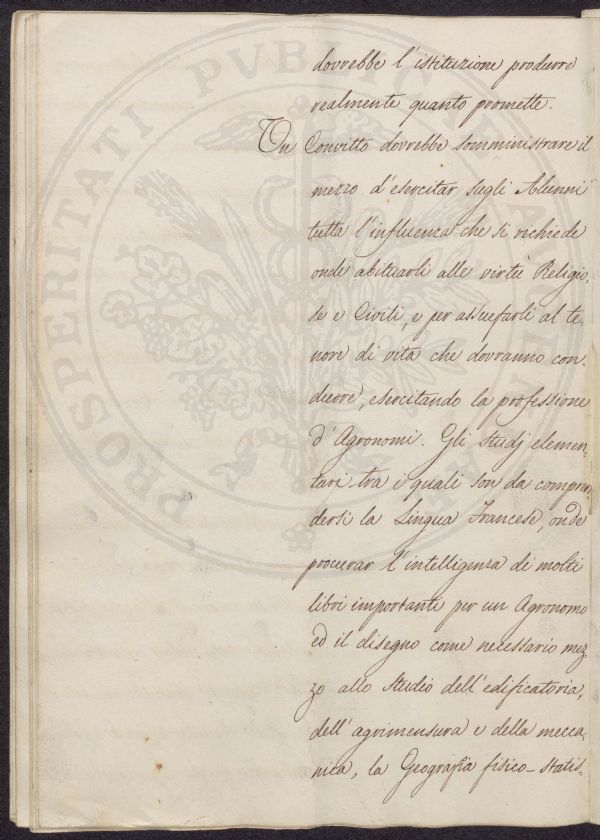 dovrebbe l'istituzione produrre
realmente quanto promette.
Un Convitto dovrebbe somministrare il
mezzo d'esercitar sugli Alunni
tutta l'influenza che si richiede
onde abituarli alle virtù Religio-
se e Civili, e per assuefarli al te-
nore di vita che dovranno con-
durre, esercitando la professione
d'Agronomi. Gli studj elemen-
tari tra i quali son da compren-
dersi la Lingua Francese, onde
procurar l'intelligenza di molti
libri importanti per un Agronomo
ed il disegno come necessario mez-
zo allo studio dell'edificatoria,
dell'agrimensura e della mecca-
nica, la Geografia fisico-statis-
PROSPERITATI PVBLICAE